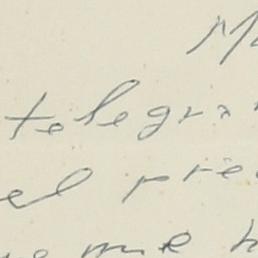 M
telegra
el pre
me